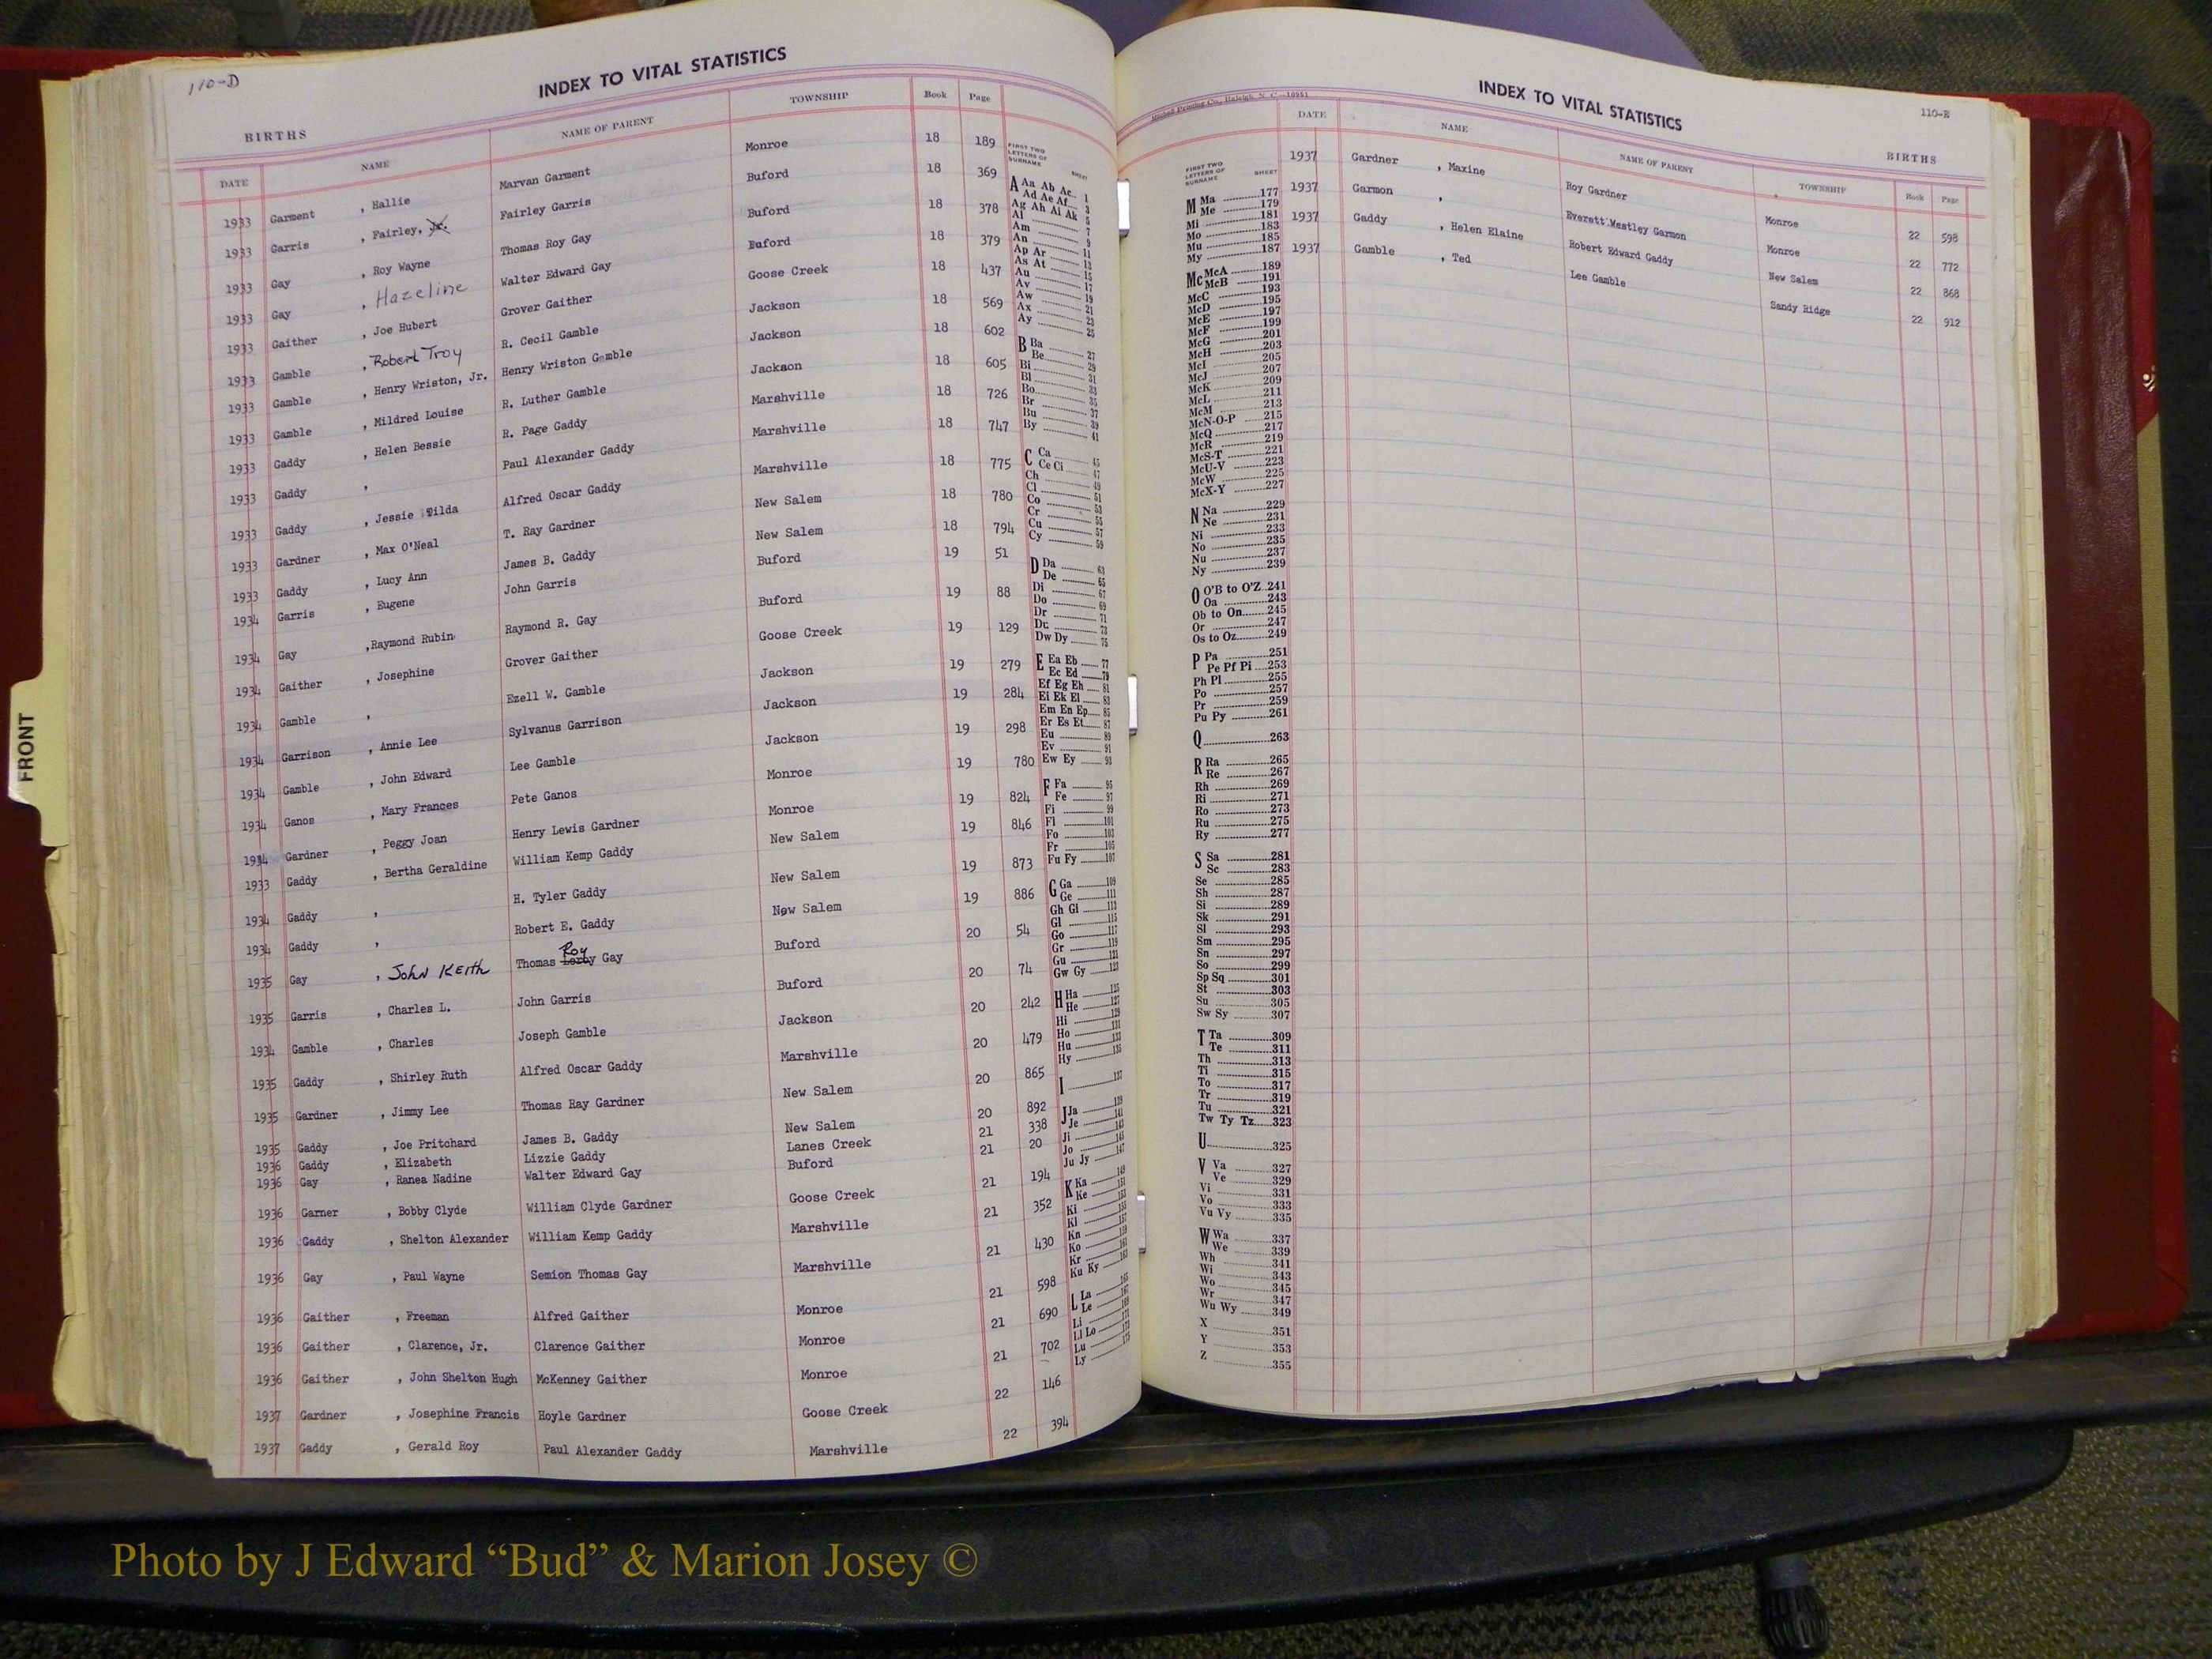 110-D
INDEX TO VITAL STATISTICS
BIRTHS
DATE NAME NAME OF PARENT TOWNSHIP Book Page
1933 Garment , Hallie Marvan Garment Monroe 18 189
1933 Garris , Fairley, Jr. Fairley Garris Buford 18 369
1933 Gay , Roy Wayne Thomas Roy Gay Buford 18 378
1933 Gay , Hazeline Walter Edward Gay Buford 18 379
1933 Gaither , Joe Hubert Grover Gaither Goose Creek 18 437
1933 Gamble , Robert Troy R. Cecil Gamble Jackson 18 569
1933 Gamble , Henry Wriston, Jr. Henry Wriston Gamble Jackson 18 602
1933 Gamble , Mildred Louise R. Luther Gamble Jackson 18 605
1933 Gaddy , Helen Bessie R. Page Gaddy Marshville 18 726
1933 Gaddy , Paul Alexander Gaddy Marshville 18 747
1933 Gaddy , Jessie Alfred Oscar Gaddy Marshville 18 775
1933 Gardner , Max O'Neal T. Ray Gardner New Salem 18 780
1933 Gaddy , Lucy Ann James B. Gaddy New Salem 18 794
1934 Garris , Eugene John Garris Buford 19 51
1934 Gay ,Raymond Rubin Raymond R. Gay Buford 19 88
1934 Gaither , Josephine Grover Gaither Goose Creek 19 129
1934 Gamble , Ezell W. Gamble Jackson 19 279
1934 Garrison , Annie Lee Sylvanus Garrison Jackson 19 284
1934 Gamble , John Edward Lee Gamble Jackson 19 298
1934 Ganos , Mary Frances Pete Ganos Monroe 19 780
1934 Gardner , Peggy Joan Henry Lewis Gardner Monroe 19 824
1933 Gaddy , Bertha Geraldine William Kemp Gaddy New Salem 19 846
1934 Gaddy , H. Tyler Gaddy New Salem 19 873
1934 Gaddy , Robert E. Gaddy New Salem 19 886
1935 Gay , John Keith Thomas Roy Gay Buford 20 54
1935 Garris , Charles L. John Garris Buford 20 74
1934 Gamble , Charles Joseph Gamble Jackson 20 242
1935 Gaddy , Shirley Ruth Alfred Oscar Gaddy Marshville 20 479
1935 Gardner , Jimmy Lee Thomas Ray Gardner New Salem 20 865
1935 Gaddy , Joe Pritchard James B. Gaddy New Salem 20 892
1936 Gaddy , Elizabeth Lizzie Gaddy Lanes Creek 21 338
1936 Gay , Ranea Nadine Walter Edward Gay Buford 21 20
1936 Garner , Bobby Clyde William Clyde Gardner Goose Creek 21 194
1936 Gaddy , Shelton Alexander William Kemp Gaddy Marshville 21 352
1936 Gay , Paul Wayne Semion Thomas Gay Marshville 21 430
1936 Gaither , Freeman Alfred Gaither Monroe 21 598
1936 Gaither , Clarence, Jr. Clarence Gaither Monroe 21 690
1936 Gaither , John Shelton Hugh McKenney Gaither Monroe 21 702
1937 Gardner , Josephine Francis Hoyle Gardner Goose Creek 22 146
1937 Gaddy , Gerald Roy Paul Alexander Gaddy Marshville 22 394
FIRST TWO
LETTERS OF
SURNAME SHEET
A Aa Ab Ac 1
Ad Ae Af 3
Ag Ah Ai Ak 5
Al 7
Am 9
An 11
Ap Ar 13
As At 15
Au 17
Av 19
Aw 21
Ax 23
Ay 25
B Ba 27
Be 29
Bi 31
Bl 33
Bo 35
Br 37
Bu 39
By 41
C Ca 45
Ce Ci 47
Ch 49
Cl 51
Co 53
Cr 55
Cu 57
Cy 59
D Da 63
De 65
Di 67
Do 69
Dr 71
Du 73
Dw Dy 75
E Ea Eb 77
Ec Ed 79
Ef Eg Eh 81
Ei Ek El 83
Em En Ep 85
Er Es Et 87
Eu 89
Ev 91
Ew Ey 93
F Fa 95
Fe 97
Fi 99
Fl 101
Fo 103
Fr 105
Fu Fy 107
G Ga 109
Ge 111
Gh Gi 113
Gl 115
Go 117
Gr 119
Gu 121
Gw Gy 123
H Ha 125
He 127
Hi 129
Ho 131
Hu 133
Hy 135
I 137
J Ja 139
Je 141
Ji 143
Jo 145
Ju Jy 147
K Ka 149
Ke 151
Ki 153
Kl 155
Kn 157
Ko 159
Kr 161
Ku Ky 163
L La 165
Le 167
Li 169
Ll Lo 171
Lu 173
Ly 175
Mitchell Printing Co., Raleigh, N. C.—10951
INDEX TO VITAL STATISTICS
110-E
BIRTHS
DATE NAME NAME OF PARENT TOWNSHIP Book Page
1937 Gardner , Maxine Roy Gardner Monroe 22 598
1937 Garmon , Everett Westley Garmon Monroe 22 772
1937 Gaddy , Helen Elaine Robert Edward Gaddy New Salem 22 868
1937 Gamble , Ted Lee Gamble Sandy Ridge 22 912
FIRST TWO
LETTERS OF
SURNAME SHEET
M Ma 177
Me 179
Mi 181
Mo 183
Mu 185
My 187
Mc McA 189
McB 191
McC 193
McD 195
McE 197
McF 199
McG 201
McH 203
McI 205
McJ 207
McK 209
McL 211
McM 213
McN-O-P 215
McQ 217
McR 219
McS-T 221
McU-V 223
McW 225
McX-Y 227
N Na 229
Ne 231
Ni 233
No 235
Nu 237
Ny 239
O O'B to O'Z 241
Oa 243
Ob to On 245
Or 247
Os to Oz 249
P Pa 251
Pe Pf Pi 253
Ph Pl 255
Po 257
Pr 259
Pu Py 261
Q 263
R Ra 265
Re 267
Rh 269
Ri 271
Ro 273
Ru 275
Ry 277
S Sa 281
Sc 283
Se 285
Sh 287
Si 289
Sk 291
Sl 293
Sm 295
Sn 297
So 299
Sp Sq 301
St 303
Su 305
Sw Sy 307
T Ta 309
Te 311
Th 313
Ti 315
To 317
Tr 319
Tu 321
Tw Ty Tz 323
U 325
V Va 327
Ve 329
Vi 331
Vo 333
Vu Vy 335
W Wa 337
We 339
Wh 341
Wi 343
Wo 345
Wr 347
Wu Wy 349
X 351
Y 353
Z 355
FRONT
Photo by J Edward “Bud” & Marion Josey ©